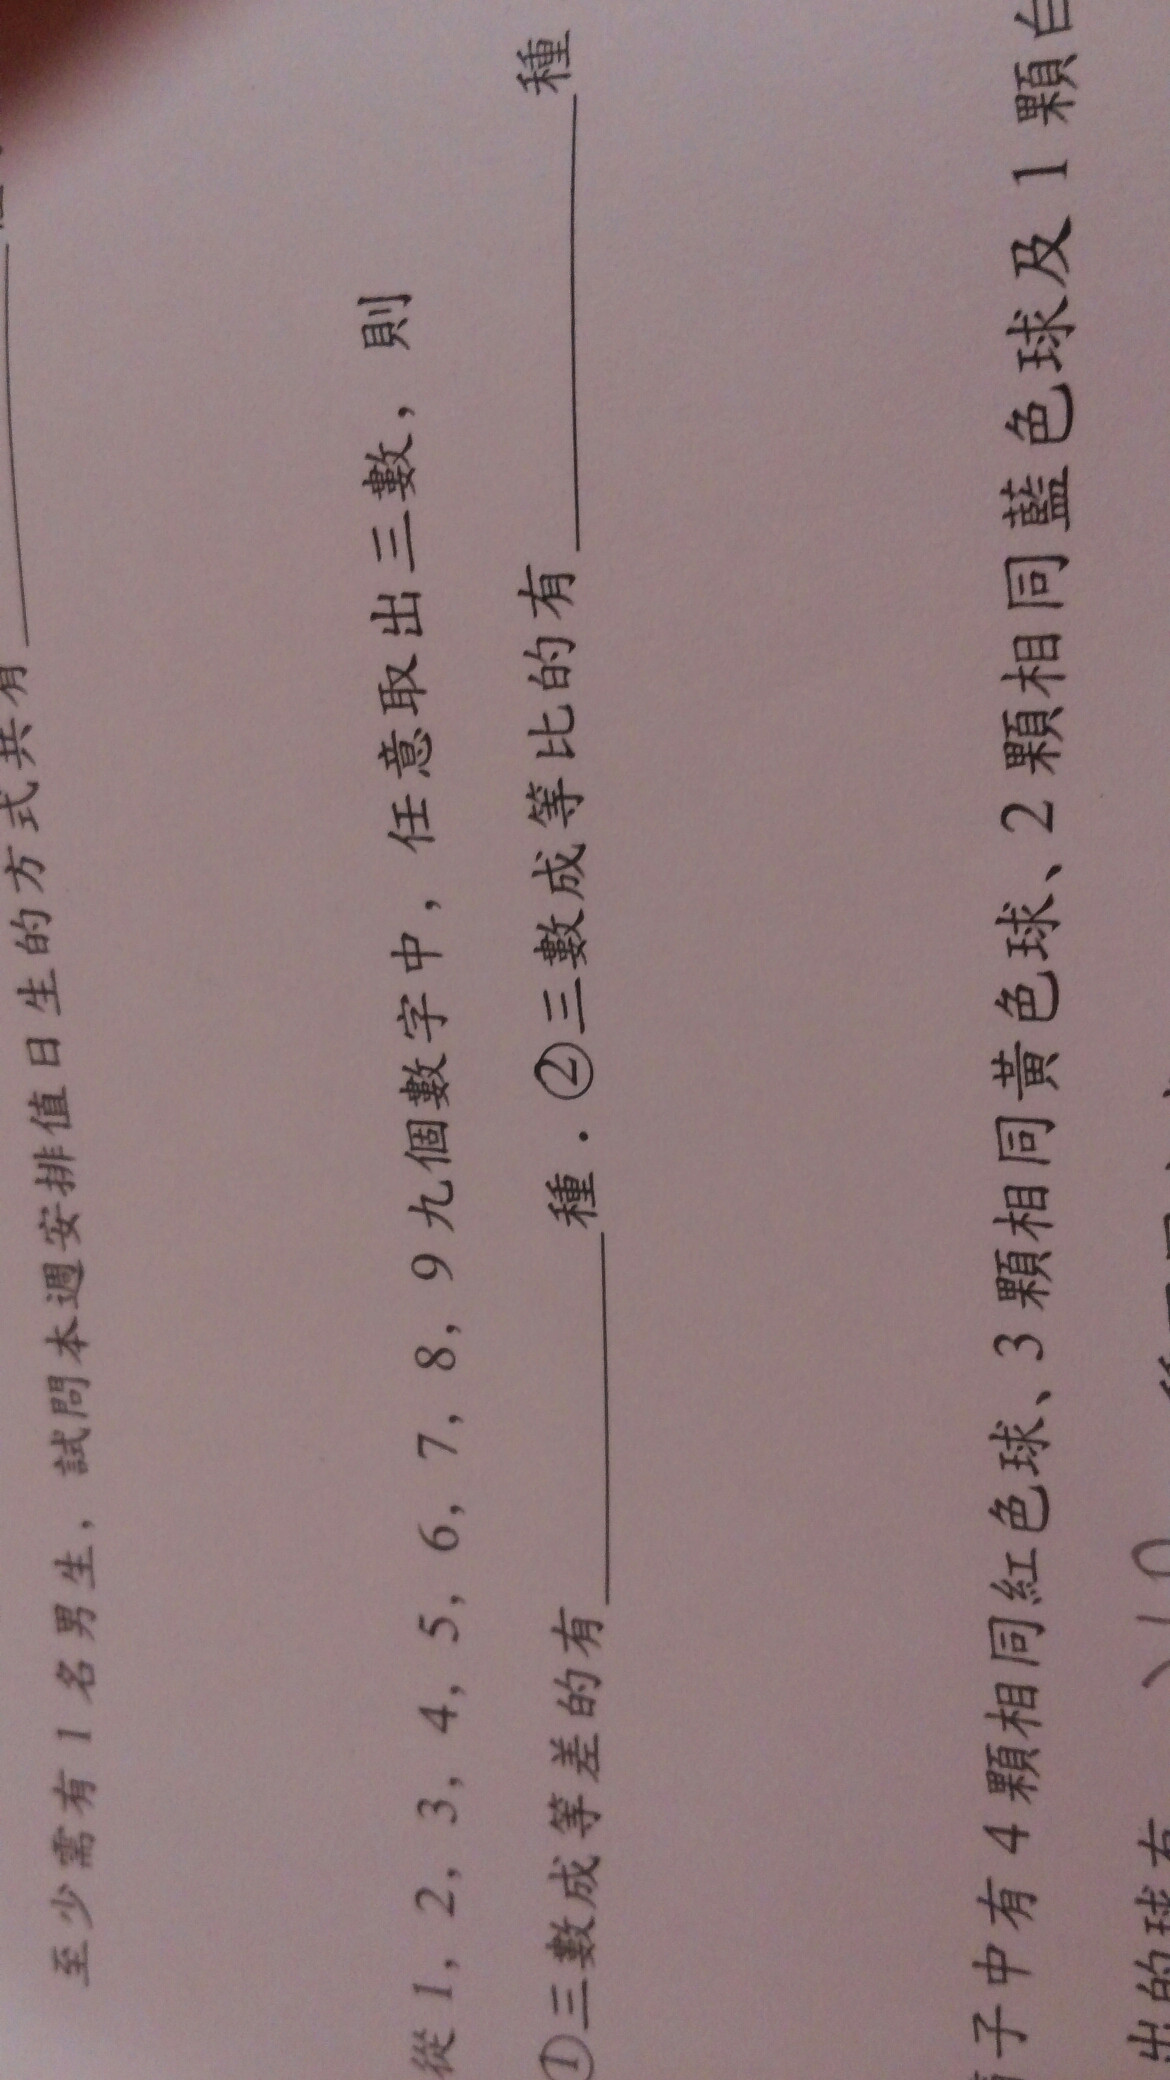 至少需有 1 名男生，試問本週安排值日生的方式共有
從 1，2，3，4，5，6，7，8，9 九個數字中，任意取出三數，則
①三數成等差的有＿＿＿＿種．②三數成等比的有＿＿＿＿種
子中有 4 顆相同紅色球、3 顆相同黃色球、2 顆相同藍色球及 1 顆白
出的球有